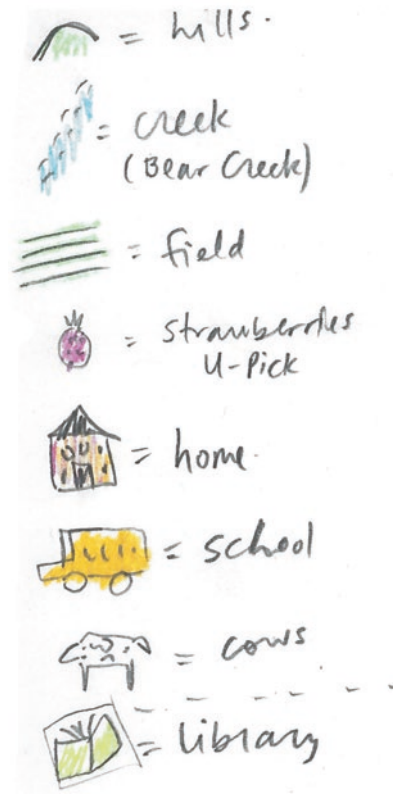 = hills.
= creek
(Bear Creek)
= field
= strawberries
U-Pick
= home.
= school
= cows
= library